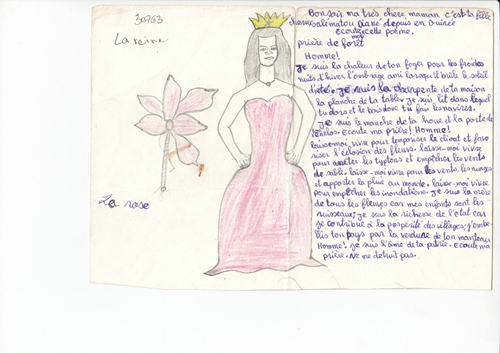 30963
La reine
La rose
Bonsoir ma très chere maman c'est ta fille
cherre salimatou Diané depuis en Guinée
Ecoute cette poème.
prière de forêt
Homme!
je suis la chaleur de ton foyer pour les froides
nuits d'hiver l'ombrage ami lorsqu'il brûle le soleil
d'été. je suis la charpente de ta maison
la planche de ta table. je suis lit dans lequel
tu dors et le bois dont tu fais les navires.
je suis le manche de ta houe et la porte de
Ecoute ma prière! Homme!
laisse-moi vivre pour temporiser le climat et favo
riser l'éclosion des fleurs. laisse-moi vivre
pour arrêter les typhons et empêcher les vents
de sable. laisse-moi vivre pour les vents, les nuages
et apporter la pluie au monde. laisse-moi vivre
pour empêcher les inondations. je suis la mère
de tous les fleuves car mes enfants sont les
ruisseaux; je suis la richesse de l'état car
je contribue à la prospérité des villages; j'embe
llis ton pays par la verdure de ton manteau
Homme! je suis l'âme de ta patrie. Ecoute ma
prière. Ne me detruit pas.